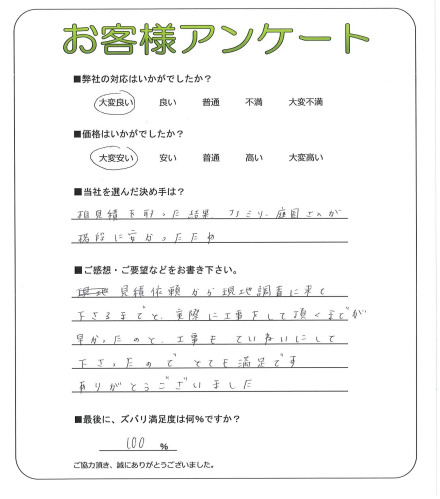 お客様アンケート
■弊社の対応はいかがでしたか？
大変良い 良い 普通 不満 大変不満
■価格はいかがでしたか？
大変安い 安い 普通 高い 大変高い
■当社を選んだ決め手は？
相見積を取った結果、ファミリー庭園さんが
格段に安かったため
■ご感想・ご要望などをお書き下さい。
見積依頼から現地調査に来て
下さるまでと、実際に工事をして頂くまでが
早かったのと、工事もていねいにして
下さったので とても満足です
ありがとうございました
■最後に、ズバリ満足度は何％ですか？
100 ％
ご協力頂き、誠にありがとうございました。